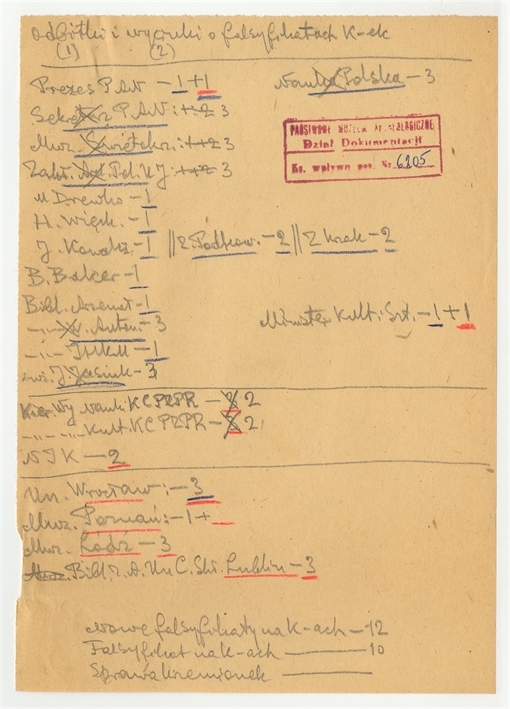 odbitki i wycinki o falsyfikatach K-ek
(1) (2)
Prezes PAN - 1 + 1
Nauka Polska - 3
Sekr. PAN : 1+2 3
Muz. Świętokrz. : 1+2 3
Zakł. Pol. UJ : 1+2 3
M Drewko - 1
H. Więck. - 1
J. Kowalsz. - 1 || Z. Podkow. - 2 || Z Krak - 2
B. Balcer - 1
Bibl. Arsenał - 1
-"- Autom - 3
-"- IHKM - 1
J. Jasiuk - 3
PAŃSTWOWE MUZEUM ARCHEOLOGICZNE
Dział Dokumentacji
Ks. wpływu poz. Nr. 6205
Minister Kult i Szt. - 1 + 1
Kier. Wy Nauki KC PZPR - 3 2
-"- -"- Kult. KC PZPR - 3 2
NIK - 2
Un. Wrocław : - 3
Muz. Poznań : - 1 +
Muz. Łódź - 3
Bibl. Z. A. Un C. Skł. Lublin - 3
Nowe falsyfikaty na K-ach - 12
Falsyfikat na K-ach - 10
Sprawa Krzemionek -